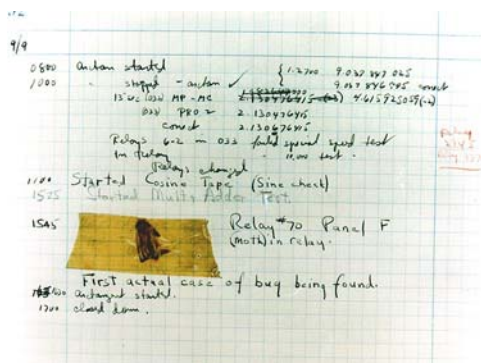 9/9
0800 antan started
1000 " stopped - antan ✓ { 1.2700 9.037 847 025
9.037 846 795 correct
13"uc (032) MP-MC 2.130476415 (-3) 4.615925059(-2)
(033) PRO 2 2.130476415
correct 2.130676415
Relays 6-2 in 033 failed special speed test
in relay " 10.000 test.
Relays changed
1100 Started Cosine Tape (Sine check)
1525 Started Mult+Adder Test.
1545 Relay #70 Panel F
(moth) in relay.
First actual case of bug being found.
1630 antangent started.
1700 closed down.